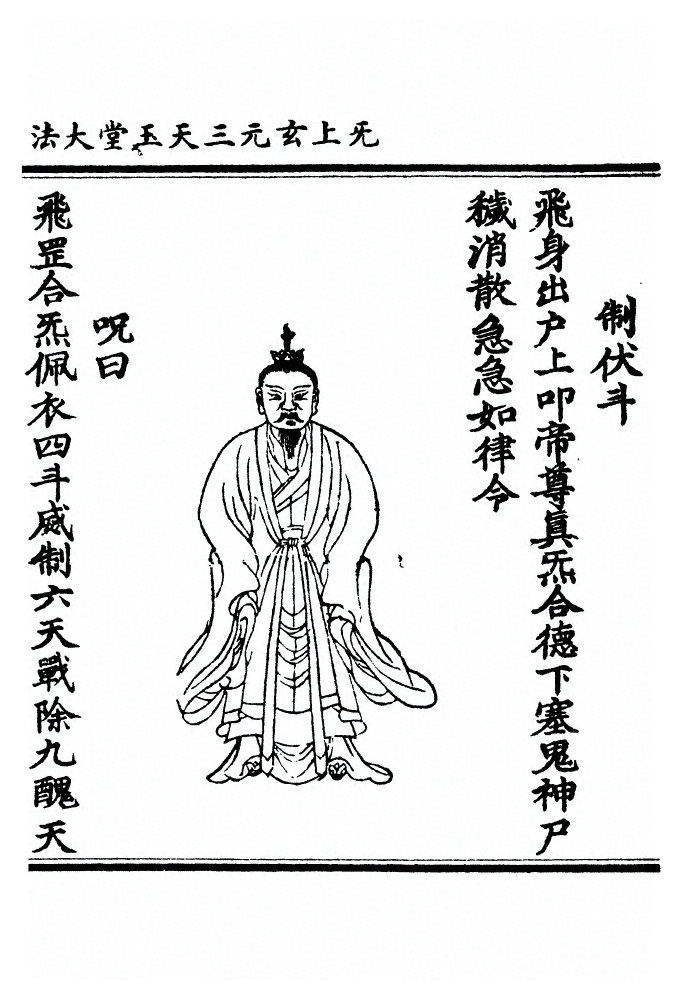 无上玄元三天玉堂大法
制伏斗
飛身出户上叩帝尊真炁合德下塞鬼神尸
穢消散急急如律令
呪曰
飛罡合炁佩衣四斗威制六天戰除九醜天